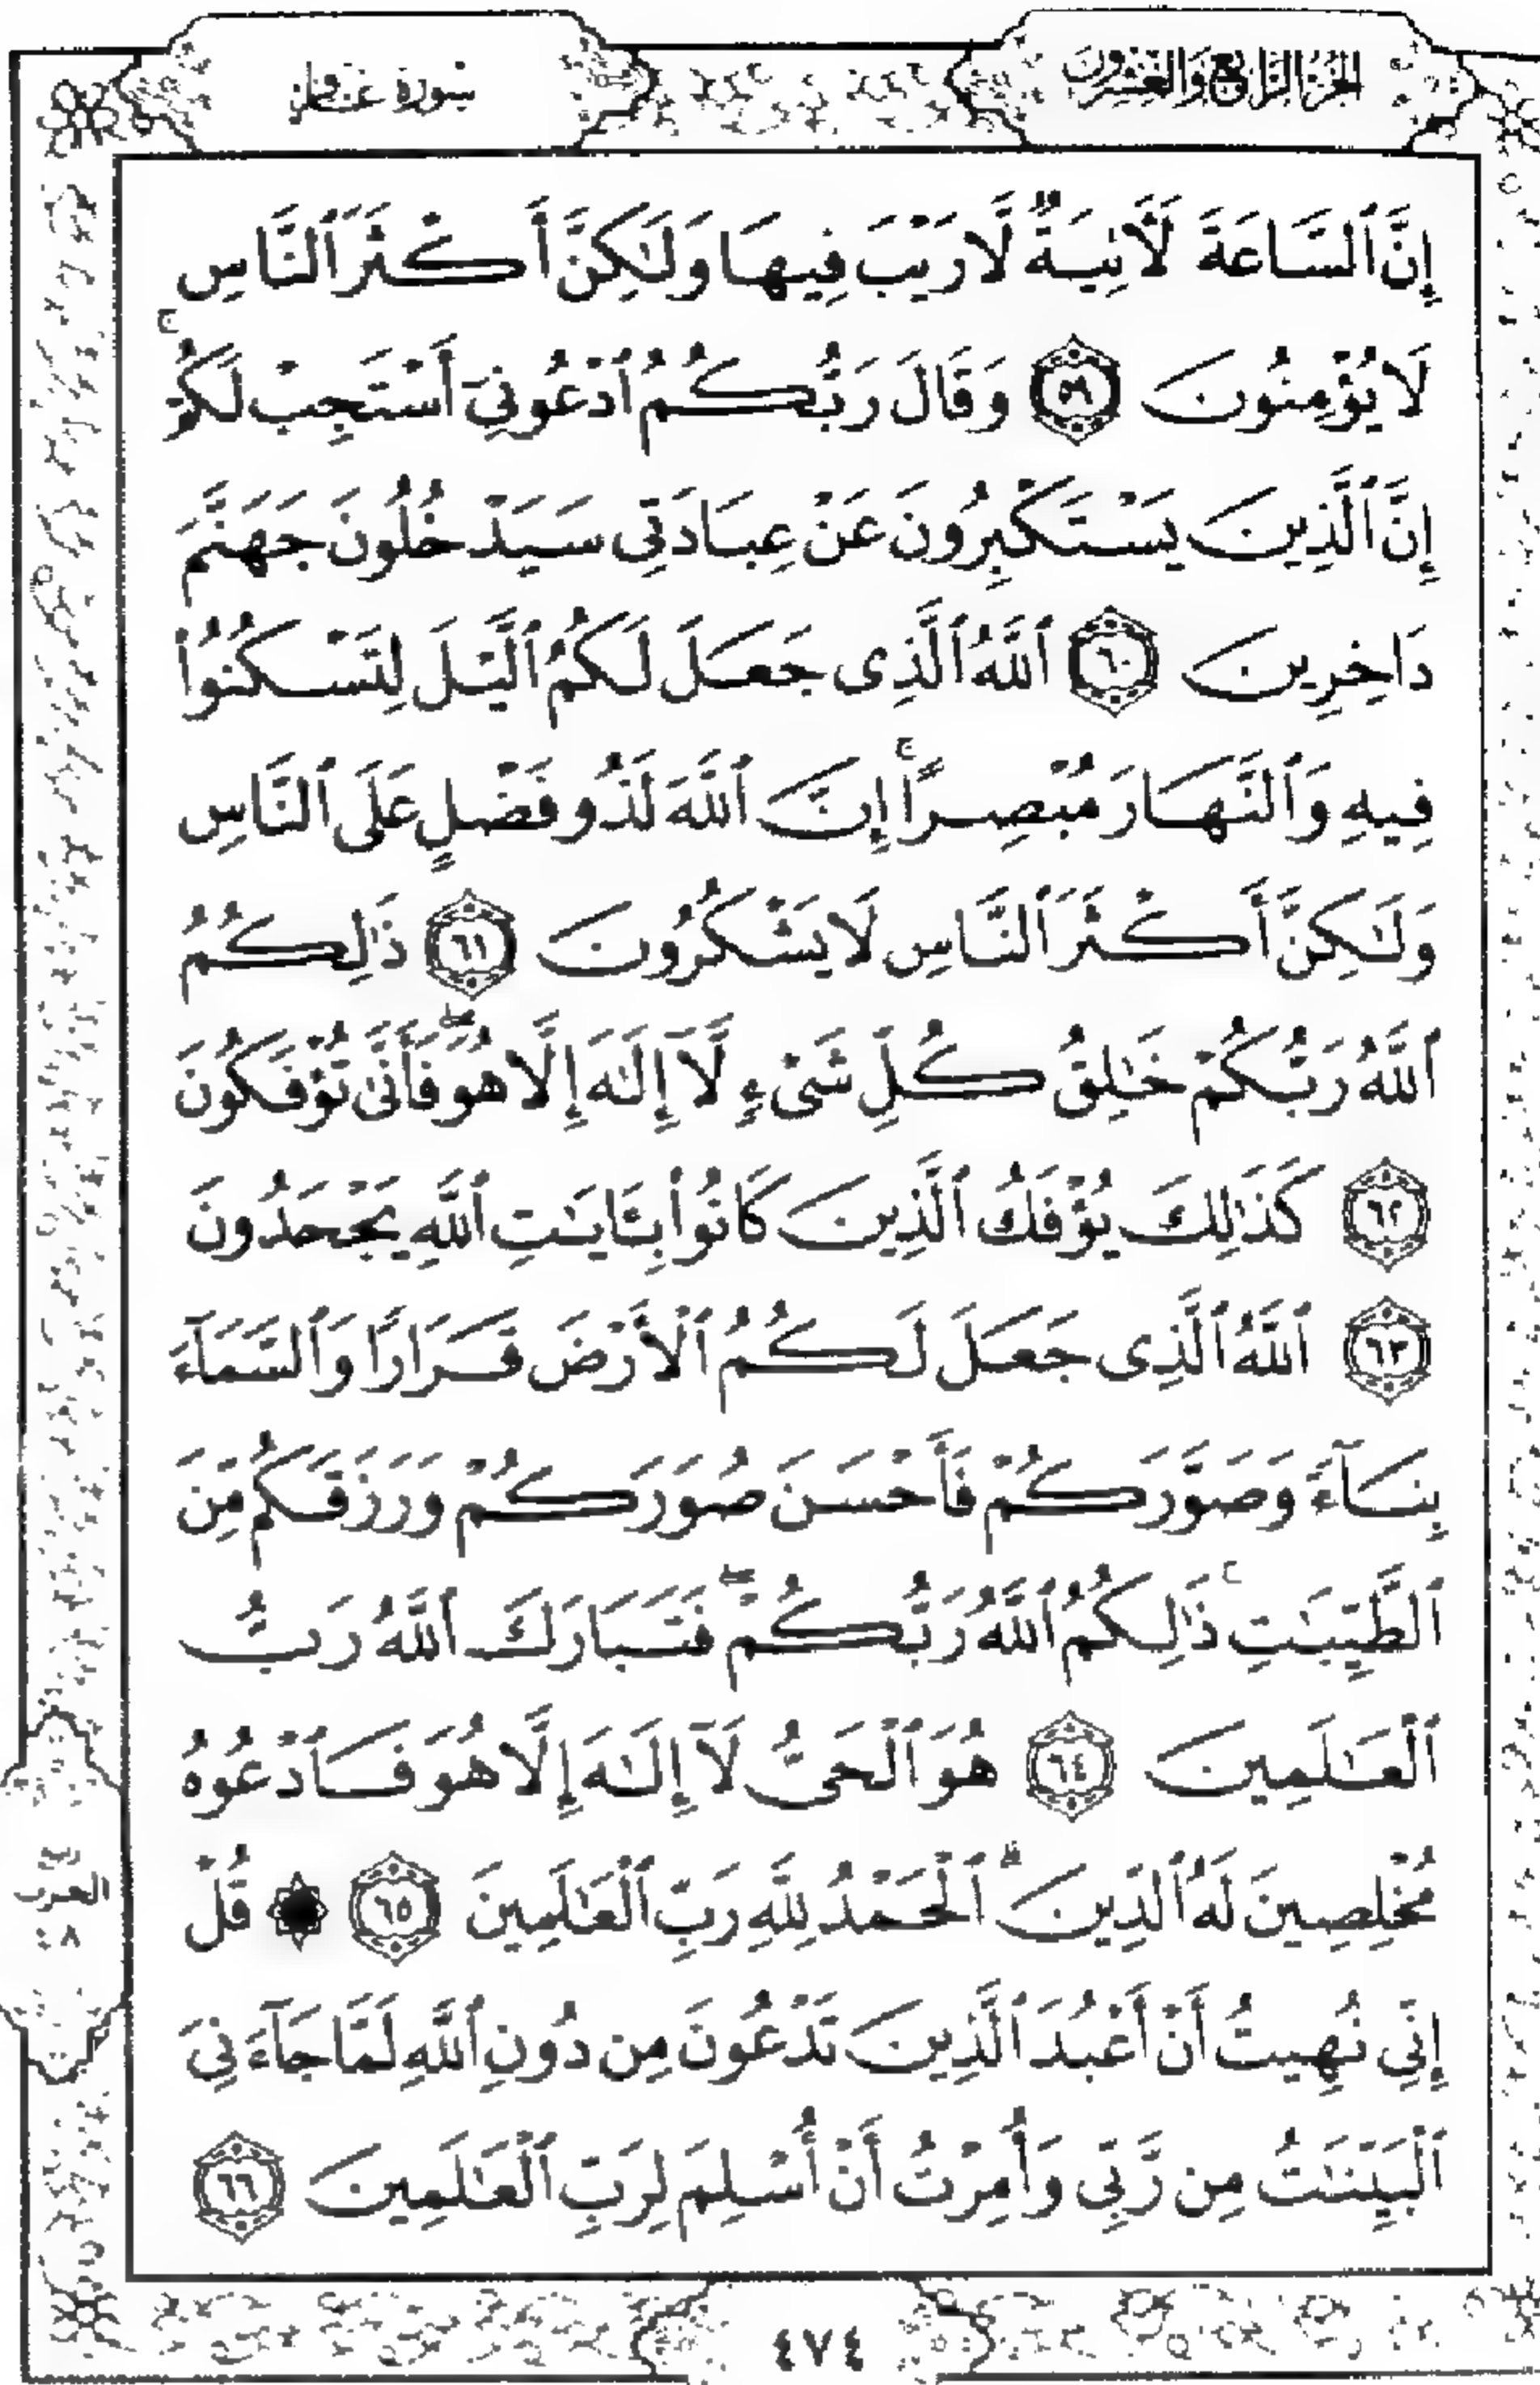 الجزء الرابع والعشرون
سورة غافر
إِنَّ ٱلسَّاعَةَ لَأٓتِيَةٌ لَّا رَيْبَ فِيهَا وَلَٰكِنَّ أَكْثَرَ ٱلنَّاسِ
لَا يُؤْمِنُونَ ٥٩ وَقَالَ رَبُّكُمُ ٱدْعُونِىٓ أَسْتَجِبْ لَكُمْ ۚ
إِنَّ ٱلَّذِينَ يَسْتَكْبِرُونَ عَنْ عِبَادَتِى سَيَدْخُلُونَ جَهَنَّمَ
دَاخِرِينَ ٦٠ ٱللَّهُ ٱلَّذِى جَعَلَ لَكُمُ ٱلَّيْلَ لِتَسْكُنُوا۟
فِيهِ وَٱلنَّهَارَ مُبْصِرًا ۚ إِنَّ ٱللَّهَ لَذُو فَضْلٍ عَلَى ٱلنَّاسِ
وَلَٰكِنَّ أَكْثَرَ ٱلنَّاسِ لَا يَشْكُرُونَ ٦١ ذَٰلِكُمُ
ٱللَّهُ رَبُّكُمْ خَٰلِقُ كُلِّ شَىْءٍ لَّآ إِلَٰهَ إِلَّا هُوَ ۖ فَأَنَّىٰ تُؤْفَكُونَ
٦٢ كَذَٰلِكَ يُؤْفَكُ ٱلَّذِينَ كَانُوا۟ بِـَٔايَٰتِ ٱللَّهِ يَجْحَدُونَ
٦٣ ٱللَّهُ ٱلَّذِى جَعَلَ لَكُمُ ٱلْأَرْضَ قَرَارًا وَٱلسَّمَآءَ
بِنَآءً وَصَوَّرَكُمْ فَأَحْسَنَ صُوَرَكُمْ وَرَزَقَكُم مِّنَ
ٱلطَّيِّبَٰتِ ۚ ذَٰلِكُمُ ٱللَّهُ رَبُّكُمْ ۖ فَتَبَارَكَ ٱللَّهُ رَبُّ
ٱلْعَٰلَمِينَ ٦٤ هُوَ ٱلْحَىُّ لَآ إِلَٰهَ إِلَّا هُوَ فَٱدْعُوهُ
مُخْلِصِينَ لَهُ ٱلدِّينَ ۗ ٱلْحَمْدُ لِلَّهِ رَبِّ ٱلْعَٰلَمِينَ ٦٥ ۞ قُلْ
إِنِّى نُهِيتُ أَنْ أَعْبُدَ ٱلَّذِينَ تَدْعُونَ مِن دُونِ ٱللَّهِ لَمَّا جَآءَنِىَ
ٱلْبَيِّنَٰتُ مِن رَّبِّى وَأُمِرْتُ أَنْ أُسْلِمَ لِرَبِّ ٱلْعَٰلَمِينَ ٦٦
٤٧٤